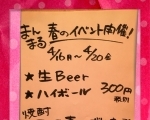 まんまる 春のイベント開催!
4/16月〜4/20金
★生Beer
★ハイボール 300円
税別
焼酎